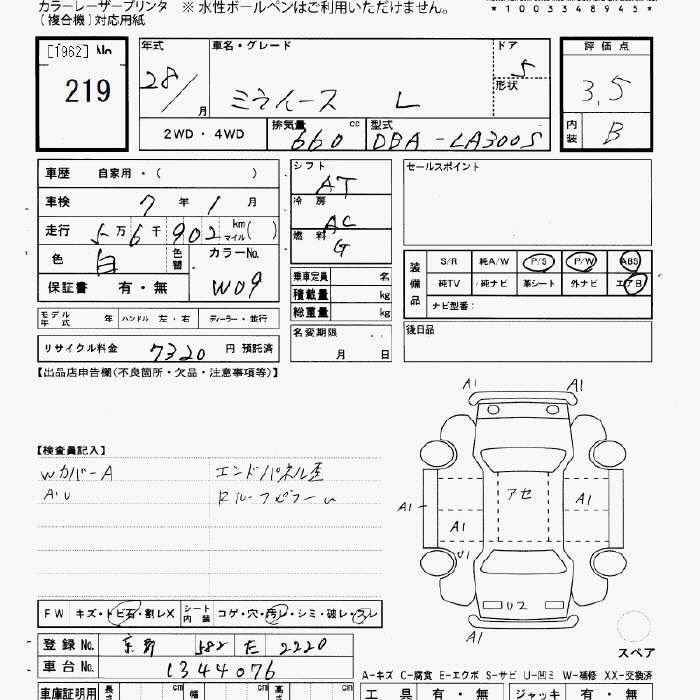 カラーレーザープリンタ ※ 水性ボールペンはご利用いただけません。
(複合機)対応用紙
*1003348945*
[1962] No
219
年式 28/ 月
車名・グレード ミライース L
ドア 5
形状
評価点 3.5
内装 B
2WD・4WD
排気量 660 cc
型式 DBA-LA300S
車歴 自家用・( )
車検 7 年 1 月
走行 5万6千902 km マイル( )
色 白 色替
カラーNo. W09
保証書 有・無
シフト AT
冷房 AC
燃料 G
乗車定員 名
積載量 kg
総重量 kg
セールスポイント
装備品 S/R 純A/W P/S P/W ABS
純TV 純ナビ 革シート 外ナビ エアB
ナビ型番:
モデル年式 年 ハンドル 左・右 ディーラー・並行
名変期限 月 日
後日品
リサイクル料金 7320 円 預託済
【出品店申告欄(不良箇所・欠品・注意事項等)】
A1 A1
【検査員記入】
Wカバ-A エンドパネル歪
AU
アセ
A1 A1 A1
U1
U2
A1
FW キズ・トビ石・割レX シート内装 コゲ・穴・汚レ・シミ・破レ・スレ
スペア
登録No. 582 2220
車台No. 1344076
A-キズ C-腐食 E-エクボ S-サビ U-凹ミ W-補修 XX-交換済
車庫証明用 長 cm 幅 cm 高 cm
工具 有・無 ジャッキ 有・無